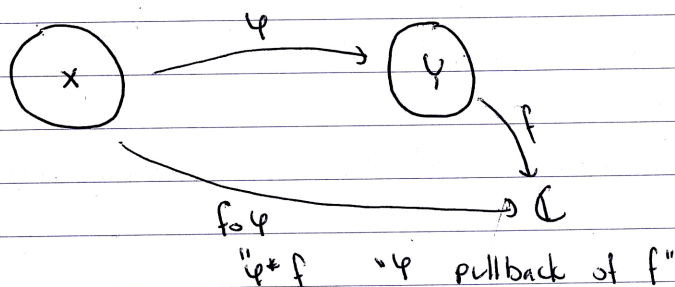 φ
X
Y
f
ℂ
f∘φ
"φ* f "φ pullback of f"